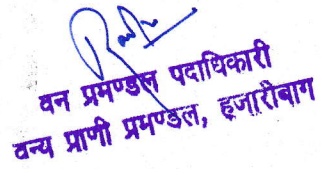 वन प्रमण्डल पदाधिकारी
वन्य प्राणी प्रमण्डल, हजारीबाग